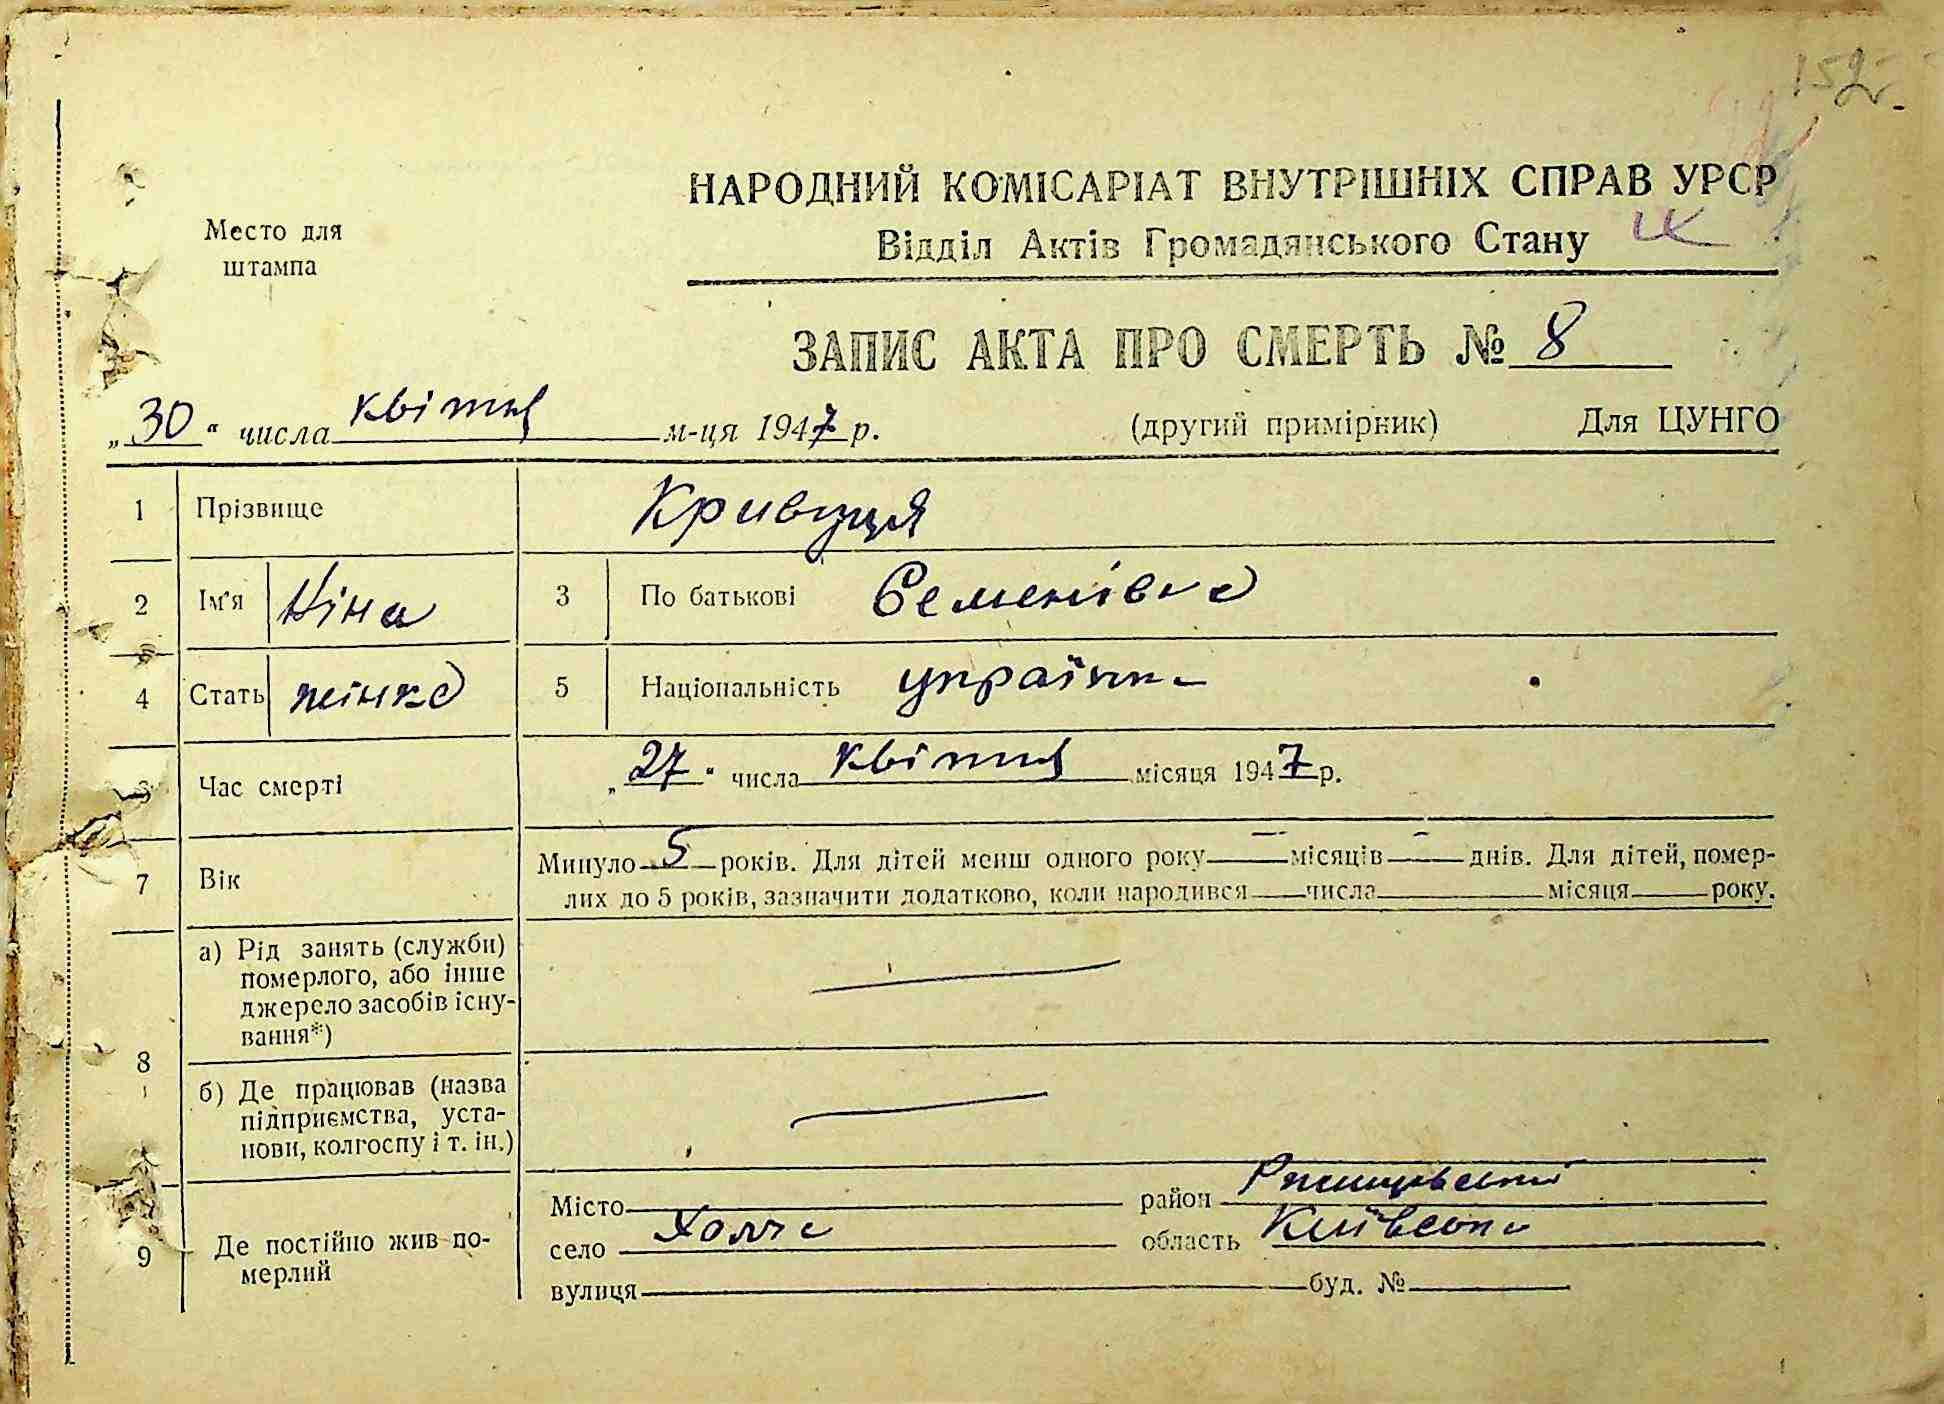 152
Место для
штампа
НАРОДНИЙ КОМІСАРІАТ ВНУТРІШНІХ СПРАВ УРСР
Відділ Актів Громадянського Стану
ЗАПИС АКТА ПРО СМЕРТЬ № 8
„30“ числа квітня м-ця 1947 р. (другий примірник) Для ЦУНГО
1 Прізвище
2 Ім'я Ніна 3 По батькові Семенівна
4 Стать жінка 5 Національність українка
6 Час смерті „27“ числа квітня місяця 1947 р.
7 Вік Минуло 5 років. Для дітей менш одного року — місяців — днів. Для дітей, помер-
лих до 5 років, зазначити додатково, коли народився числа місяця року.
8 а) Рід занять (служби)
померлого, або інше
джерело засобів існу-
вання*) —
б) Де працював (назва
підприємства, уста-
нови, колгоспу і т. ін.) —
9 Де постійно жив по-
мерлий
Місто район Ржищівський
село область Київська
вулиця буд. №